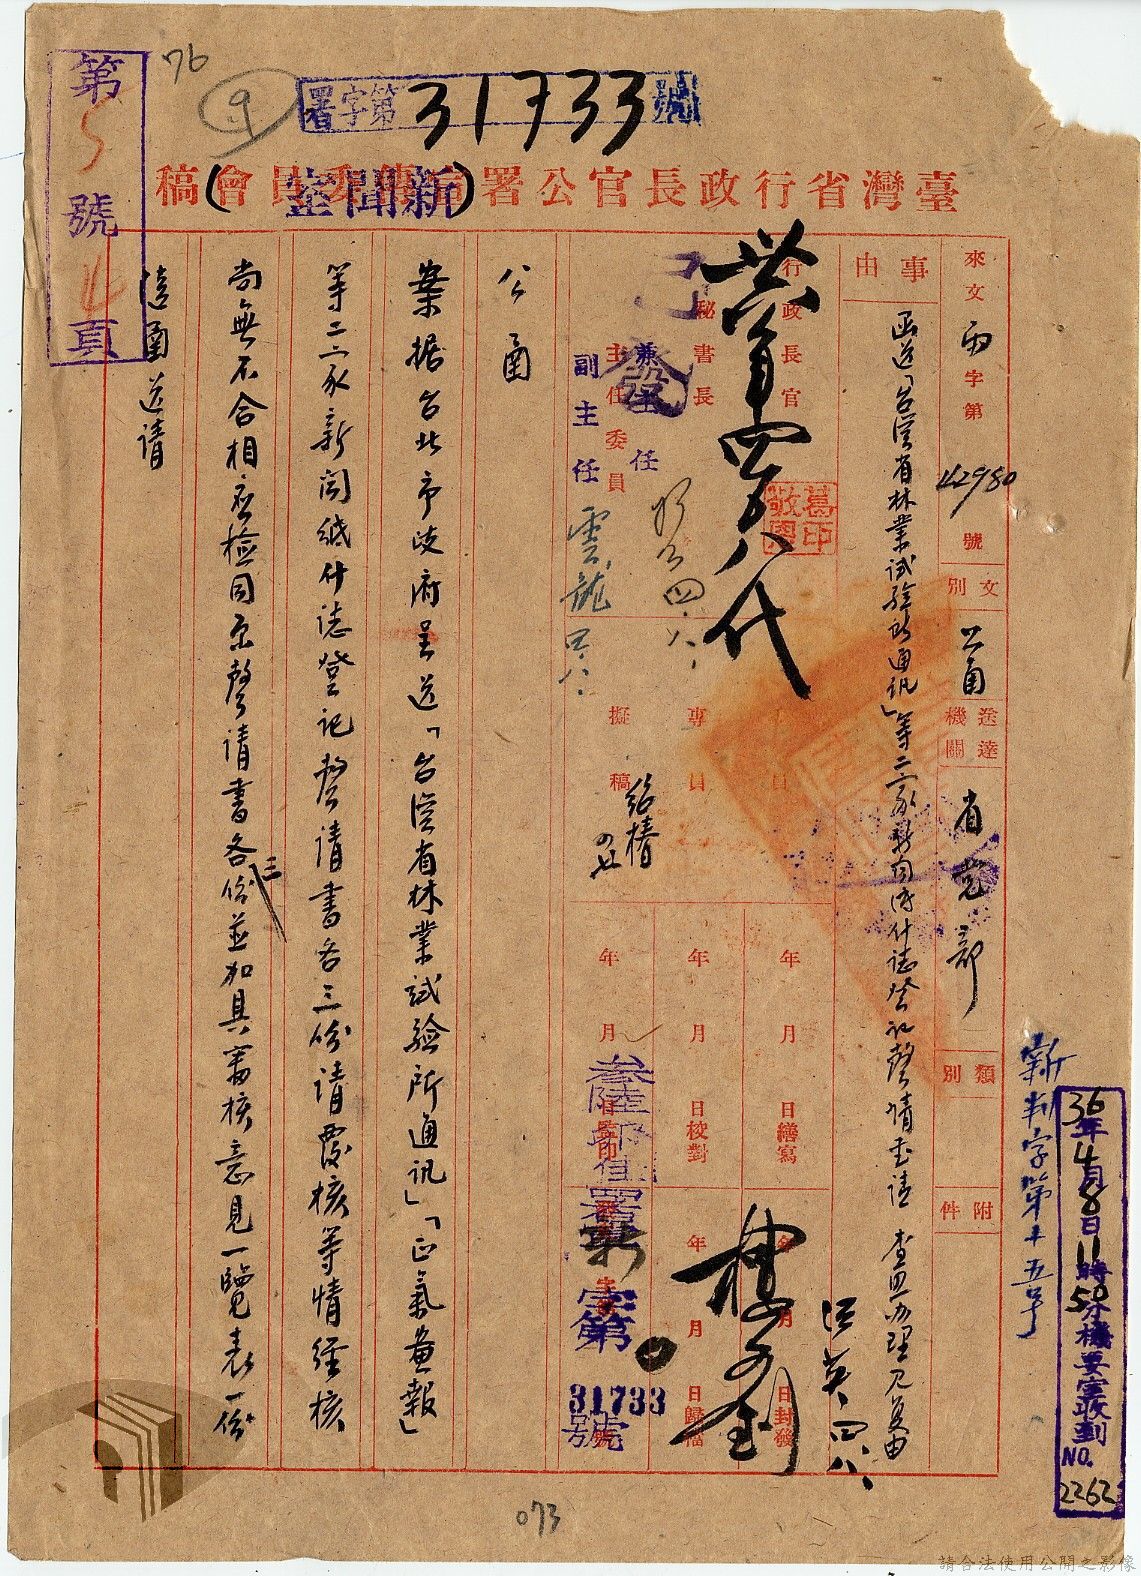 76
9
署字第31733號
第5號4頁
臺灣省行政長官公署宣傳委員會(新聞室)稿
來文 字第42980號
文別 公函
送達機關 省党部
類別
附件
事由
函送「台湾省林業試驗所通訊」等二家新闻紙什誌登记聲請書請 查照办理见复由
行政長官
秘書長
主任委員
兼主任
副主任
已發
葛敬恩印
雲龍 四、八、
專員
擬稿
紹椿
年 月 日繕寫
年 月 日校對
年 月 日封發
年 月 日歸檔
叁陸
署新字第31733號
洪英 四、八、
公函
案据台北市政府呈送「台湾省林業試驗所通訊」「正氣画報」
等二家新闻紙什誌登记聲請書各三份請覆核等情経核
尚無不合相应檢同原聲請書各三份並加具審核意見一覽表一份
随函送請
36年4月8日11時50分機要室收到
NO. 2262
073
請合法使用公開之影像